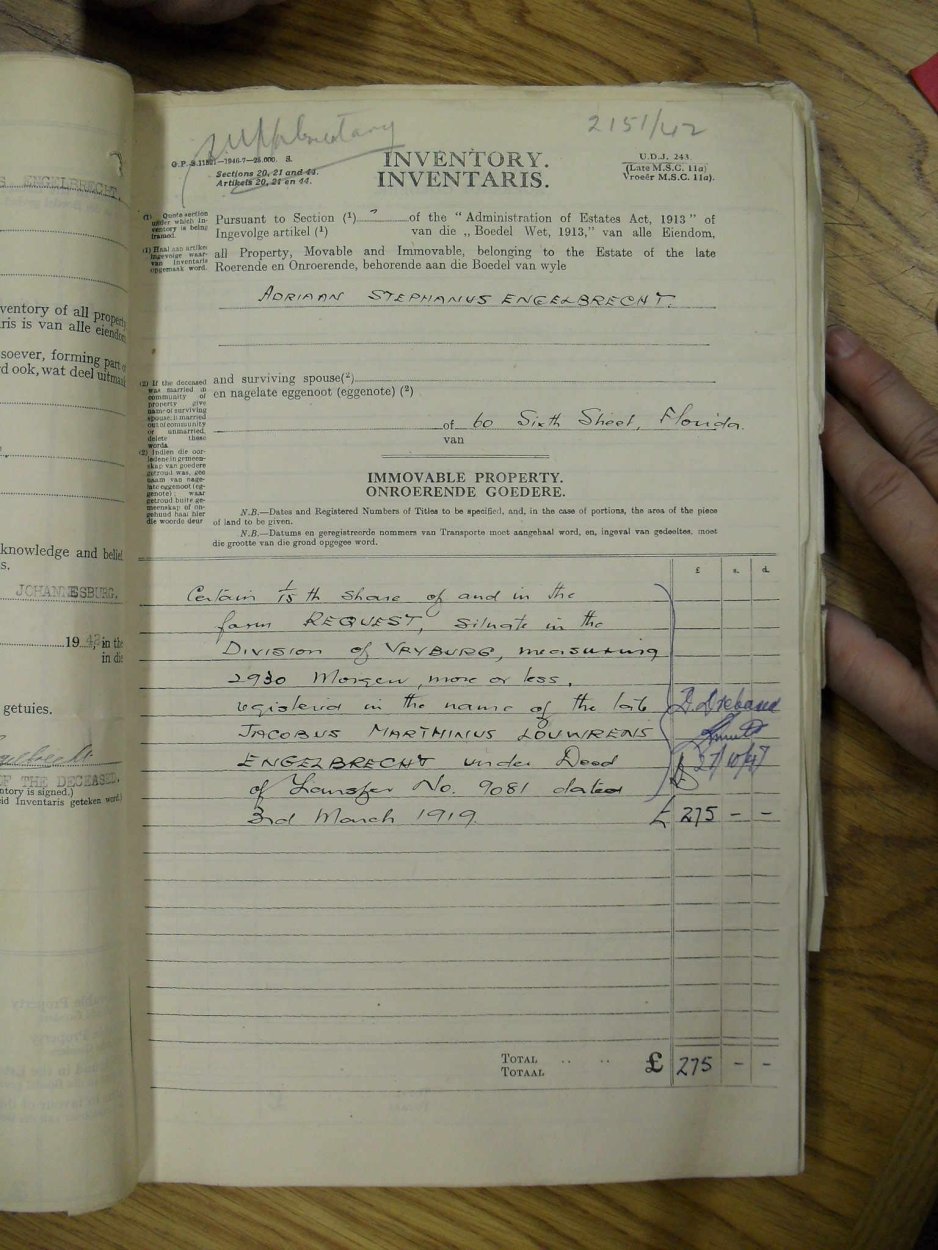 S ENGELBRECHT.
ventory of all property
ris is van alle eiendom
soever, forming part of
d ook, wat deel uitmaak
knowledge and belief
s.
JOHANNESBURG.
19 42, in the
in die
getuies.
OF THE DECEASED.
ntory is signed.)
eid Inventaris geteken word.)
Supplementary
2151/42
G.P.-S.11821—1946-7—25,000. S.
Sections 20, 21 and 44.
Artikels 20, 21 en 44.
INVENTORY.
INVENTARIS.
U.D.J. 243
(Late M.S.C. 11a)
Vroeër M.S.C. 11a).
(1) Quote section
under which In-
ventory is being
framed.
(1) Haal aan artikel
ingevolge waar-
van Inventaris
opgemaak word.
Pursuant to Section (¹) of the "Administration of Estates Act, 1913" of
Ingevolge artikel (¹) van die „Boedel Wet, 1913," van alle Eiendom,
all Property, Movable and Immovable, belonging to the Estate of the late
Roerende en Onroerende, behorende aan die Boedel van wyle
ADRIAAN STEPHANUS ENGELBRECHT.
(2) If the deceased
was married in
community of
property give
name of surviving
spouse; if married
out of community
or unmarried,
delete these
words.
(2) Indien die oor-
ledene in gemeen-
skap van goedere
getroud was, gee
naam van nage-
late eggenoot (eg-
genote); waar
getroud buite ge-
meenskap of on-
gehuud haal hier
die woorde deur
and surviving spouse(²)
en nagelate eggenoot (eggenote) (²)
of 60 Sixth Street, Florida.
van
IMMOVABLE PROPERTY.
ONROERENDE GOEDERE.
N.B.—Dates and Registered Numbers of Titles to be specified, and, in the case of portions, the area of the piece
of land to be given.
N.B.—Datums en geregistreerde nommers van Transporte moet aangehaal word, en, ingeval van gedeeltes, moet
die grootte van die grond opgegee word.
£ s. d.
Certain 1/15 th share of and in the
farm REQUEST, situate in the
DIVISION of VRYBURG, measuring
2930 Morgen, more or less,
registered in the name of the late
JACOBUS MARTHINUS LOUWRENS
ENGELBRECHT under Deed
27/10/47
of Transfer No. 9081 dated
3rd March 1919. £ 275 – –
TOTAL .. .. £ 275 – –
TOTAAL